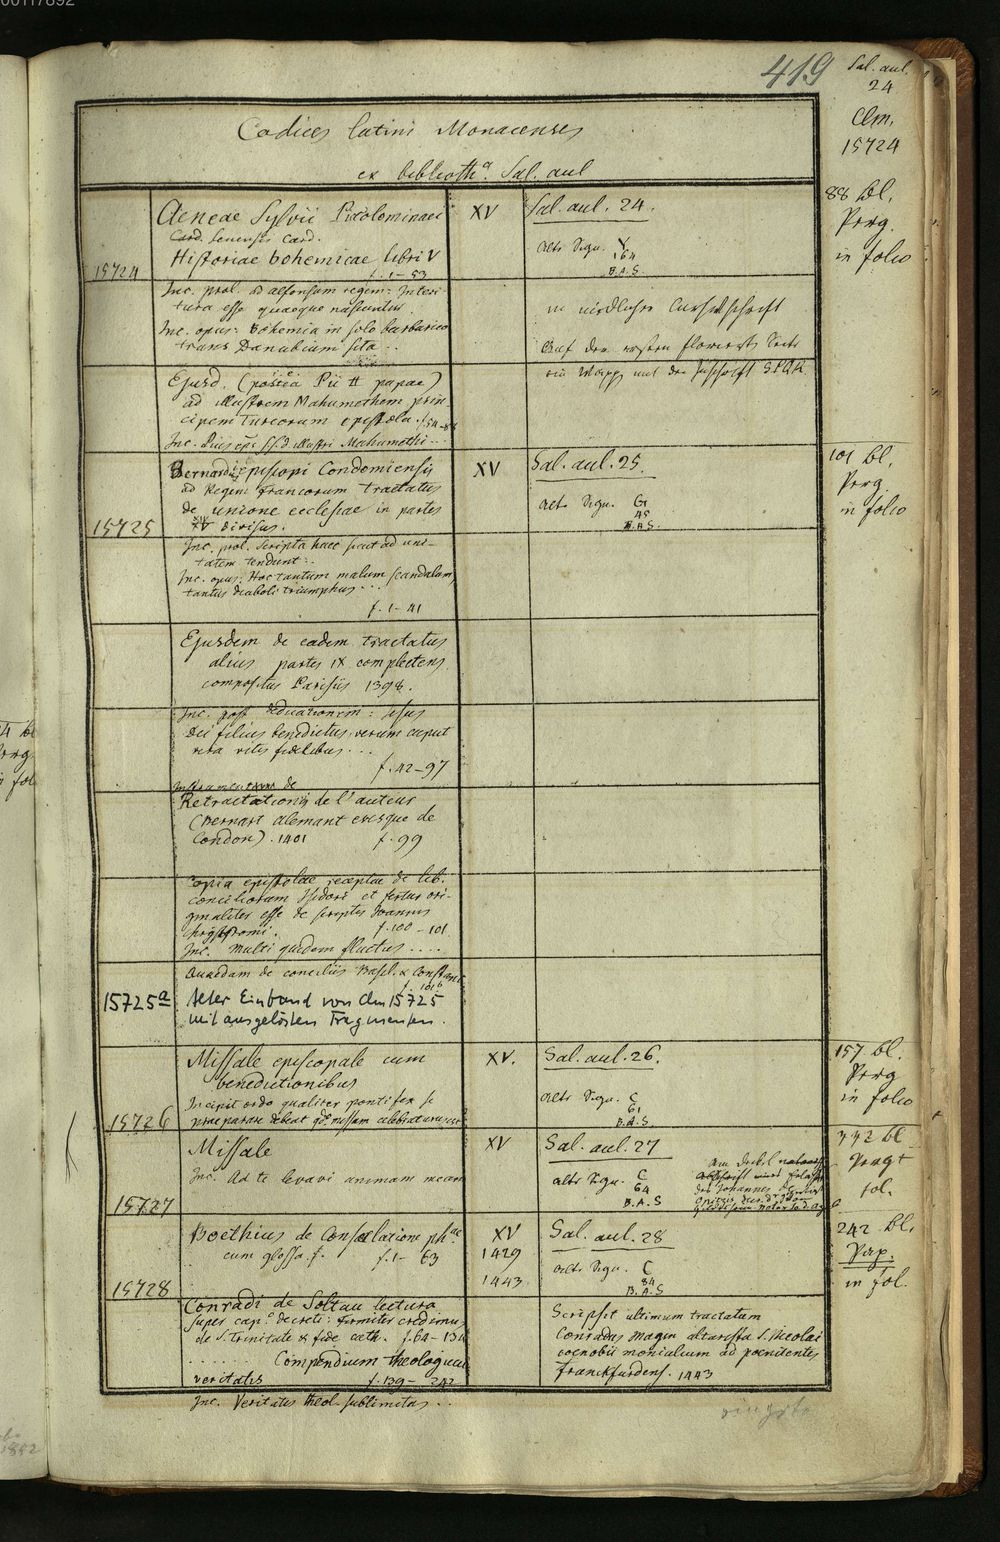 00117892
419
Sal. aul.
24
Clm.
15724
Codices latini Monacenses
ex biblioth.ᵃ Sal. aul
15724
Aeneae Sylvii Piccolominaei
Card. Senensis Card.
Historiae bohemicae libri V
f. 1-53
XV
Sal. aul. 24.
alte Sign. Y.
164
B.A.S.
88 Bl.
Perg.
in folio
Inc. prol. ad alfonsum regem: Interi-
tura esse quaeque nascuntur
Inc. opus: Bohemia in solo barbarico
trans Danubium sita..
in niedlicher Cursivschrift
Auf der ersten florierten Seite
ein Wapp. mit der Inschrift S.P.Q.R.
Ejusd. (postea Pii II papae)
ad illustrem Mahumethem prin
cipem Turcorum epistola. f. 54-88
Inc. Pius eps illustri Mahumethi...
15725
Bernardi episcopi Condomiensis
ad Regem francorum tractatus
de unione ecclesiae in partes
XV divisus.
XV
Sal. aul. 25.
alte Sign. G
45
B.A.S.
101 Bl.
Perg.
in folio
Inc. prol. Scripta haec sicut ad uni-
tatem tendunt..
Inc. opus: Hoc tantum malum scandalum
tantus diaboli triumphus...
f. 1-41
Ejusdem de eadem tractatus
alius partes IX complectens
compositus Parisiis 1398.
Inc. post dedicationem: Jesus
dei filius benedictus, verum caput
vera vitis fidelibus...
f. 42-97
Instrumentum de
Retractationis de l'auteur
(Bernart alemant evesque de
Condon). 1401 f. 99
Copia epistolae receptae de lib.
conciliorum Isidori et fertur ori-
ginaliter esse de scriptis Joannis
chrysostomi. f. 100-101
Inc. Multi quidem fluctus....
Quaedam de conciliis Basil. & Constanc.
f. 101b
15725a
Alter Einband von Clm 15725
mit ausgelösten Fragmenten.
15726
Missale episcopale cum
benedictionibus
Incipit ordo qualiter pontifex se
praeparare debeat qdo missam celebraturus est
XV.
Sal. aul. 26.
alte Sign. C
61
B.A.S.
157 Bl.
Perg
in folio
15727
Missale
Inc. Ad te levavi animam meam
XV
Sal. aul. 27
alte Sign. C
64
B.A.S
Am Deckel
Abschrift
des Johannes
332 Bl
Perg
fol.
15728
Boethius de Consolatione ph.ᵃᵉ
cum glossa f. f. 1- 63
XV
1429
1443
Sal. aul. 28
alte Sign. C
84
B.A.S
242 Bl.
Pap.
in fol.
Conradi de Soltau lectura
super cap.º decreti: firmiter credimus
de S. trinitate & fide cath. f. 64-138
...... Compendium theologicae
veritatis f. 139- 242
Inc. Veritatis theol. sublimitas..
Scripsit ultimum tractatum
Conradus Magen altarista S. Nicolai
coenobii monialium ad poenitentes
Franckfurdens. 1443